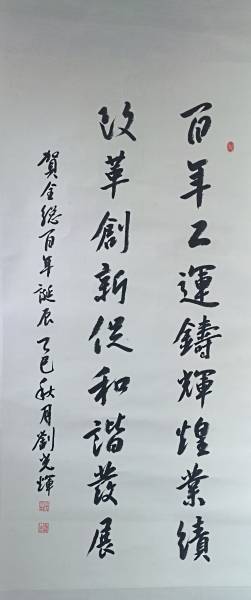 百年工運鑄輝煌業績
改革創新促和諧發展
賀全總百年誕辰乙巳秋月劉光輝